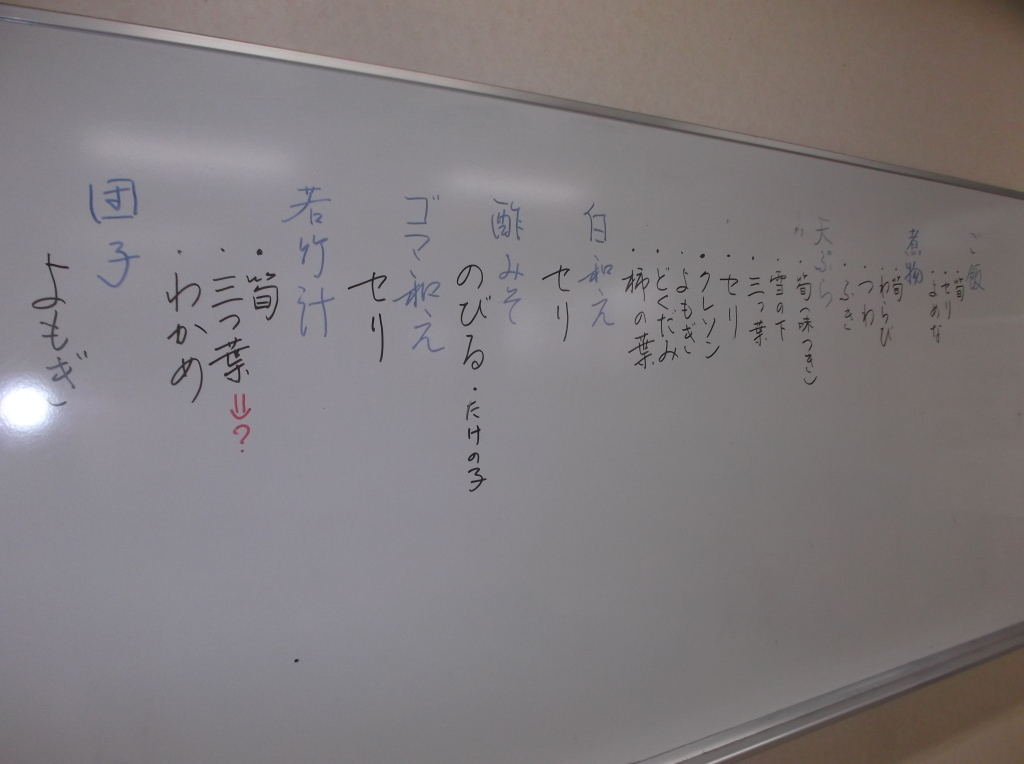 ご飯
・筍
・セリ
・よめな
煮物
・筍
・わらび
・つわ
・ふき
天ぷら
・筍(味つき)
・雪の下
・三つ葉
・セリ
・クレソン
・よもぎ
・どくだみ
・柿の葉
白和え
セリ
酢みそ
のびる・たけの子
ゴマ和え
セリ
若竹汁
・筍
・三つ葉⇒?
・わかめ
団子
よもぎ